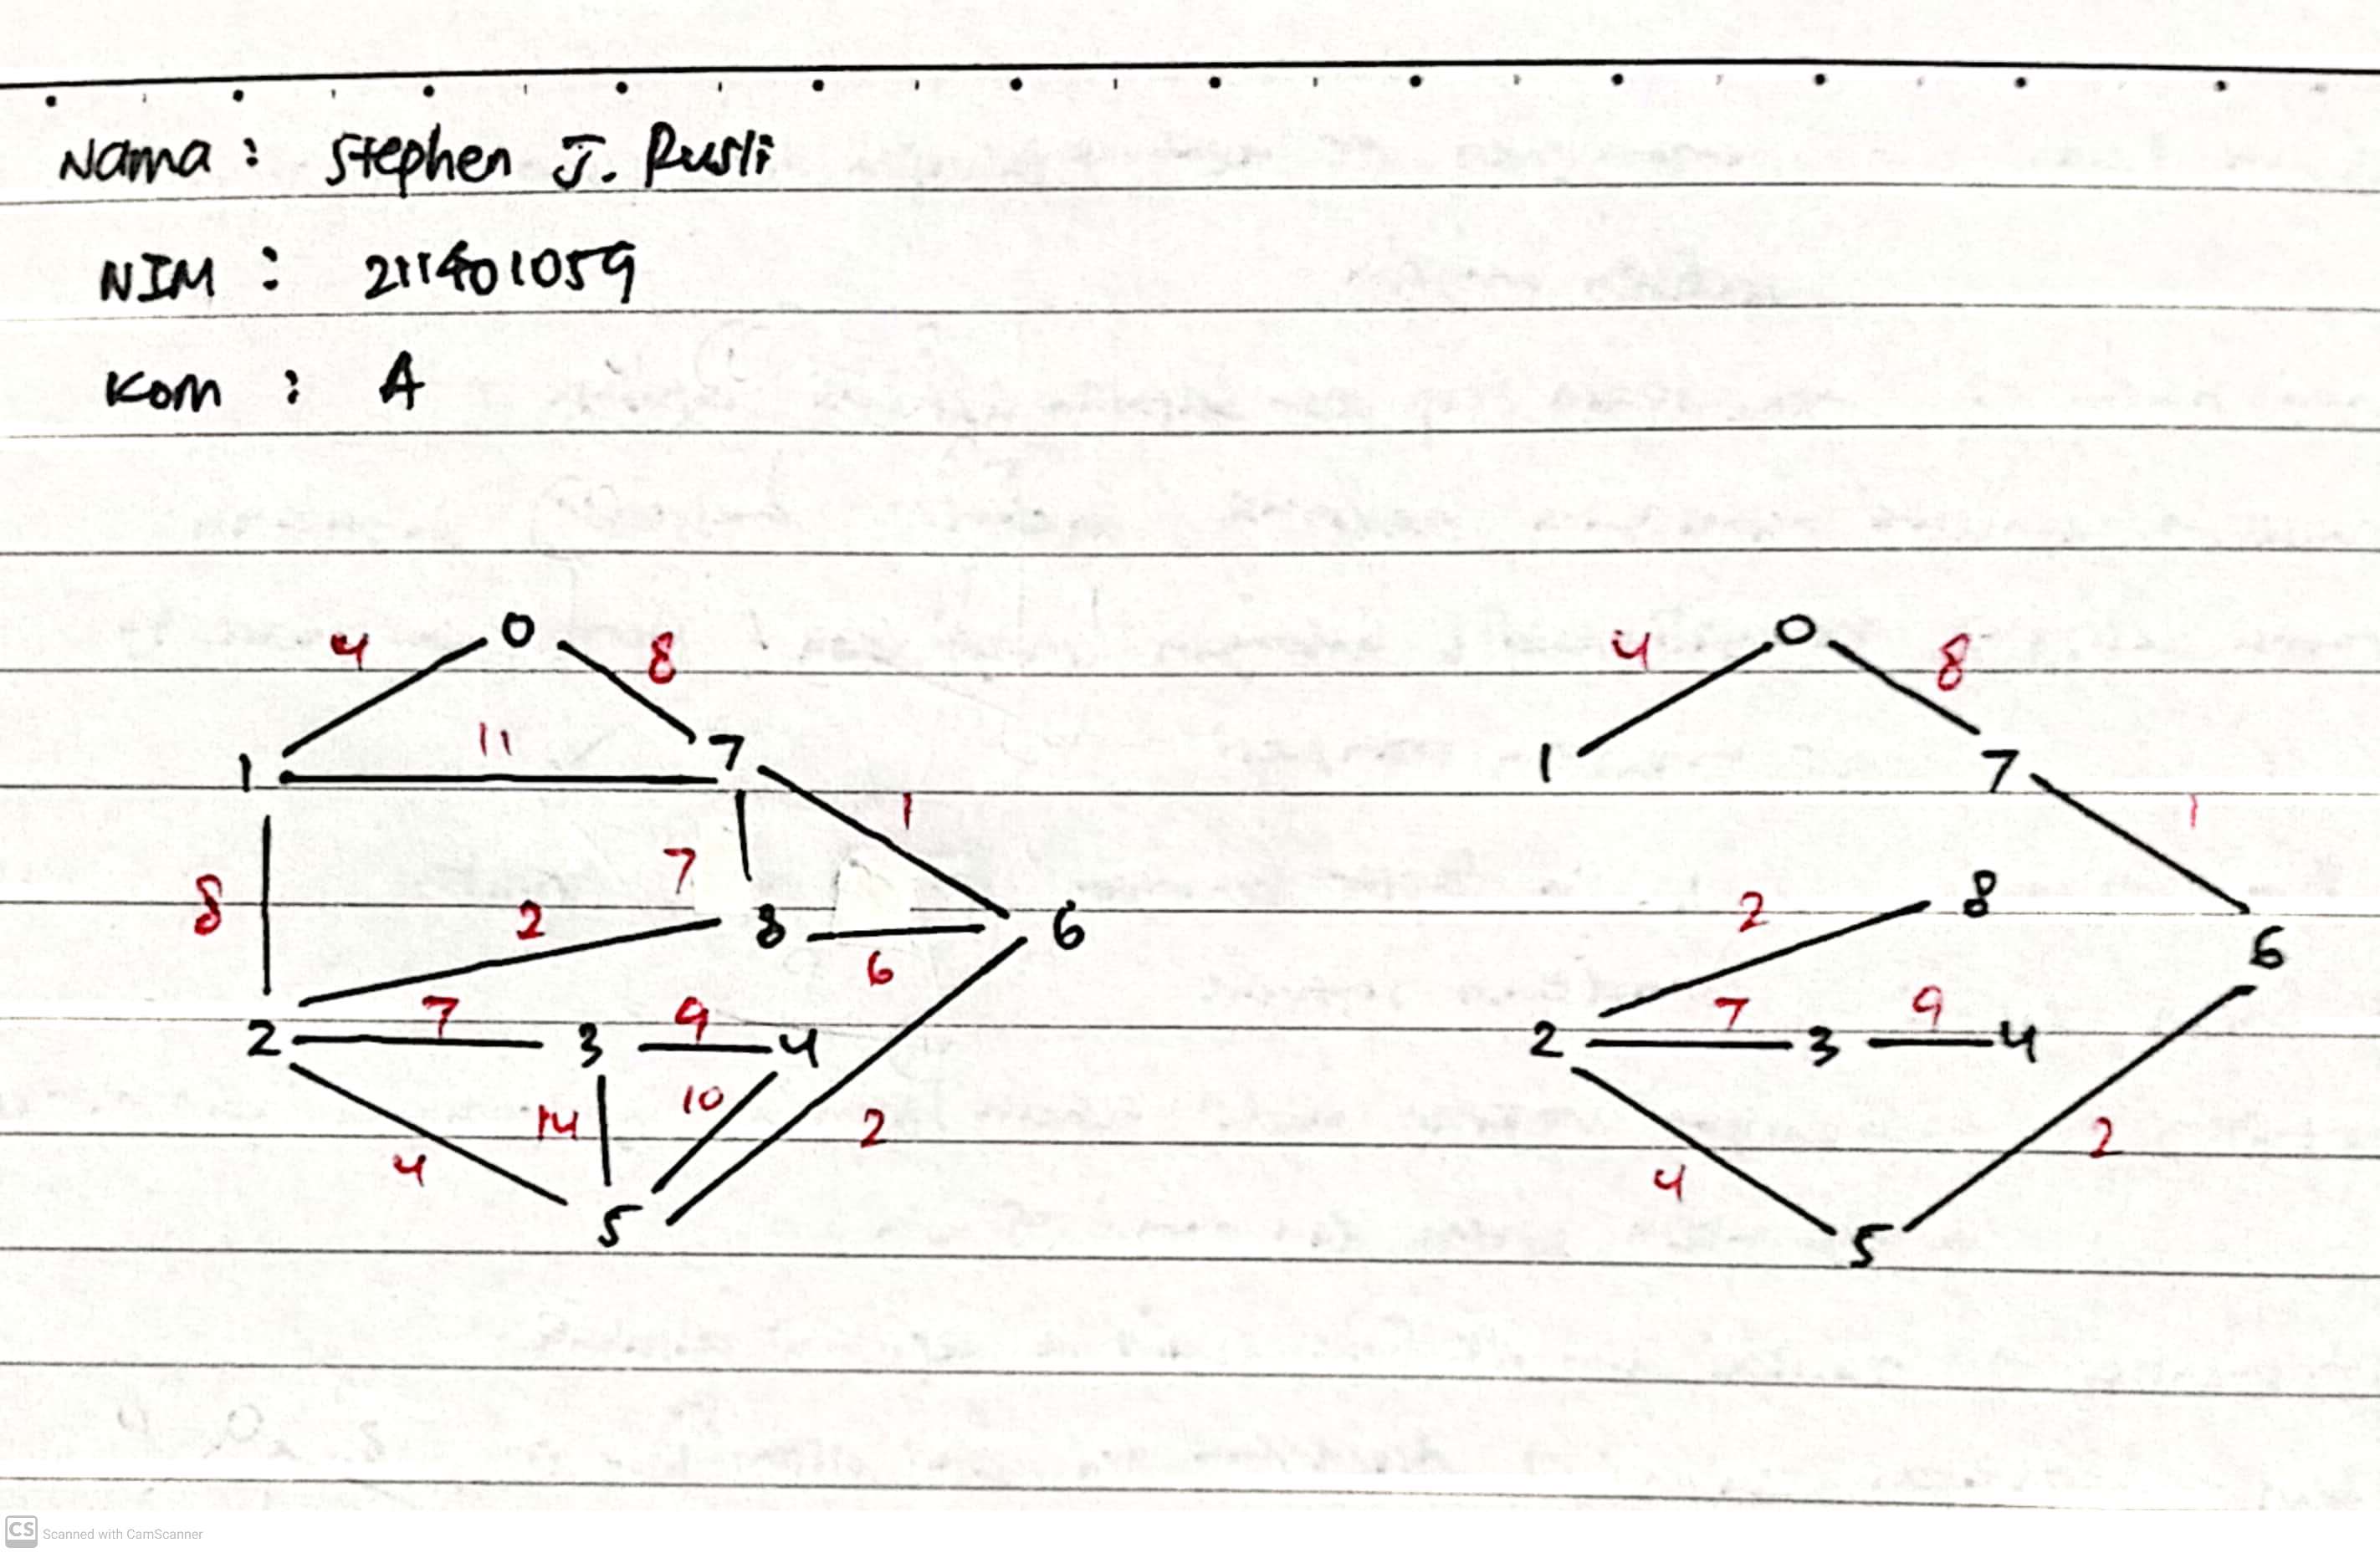 Nama : Stephen J. Rusli
NIM : 211401059
Kom : A
4 0 8
11
1 7
1
7
8 2 8 6
6
7 9
2 3 4
14 10 2
4
5
4 0 8
1 7 1
2 8
6
7 9
2 3 4
4 2
5
CS Scanned with CamScanner